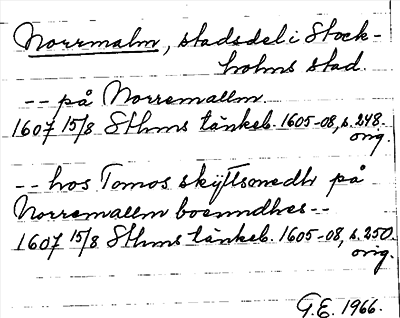 Norrmalm, stadsdel i Stock-
holms stad.
-- på Norremallm
1607 15/8 Sthms tänkeb. 1605-08, s. 248.
orig.
-- hos Tomos skyttsmedh på
Norremallm boenndhes --
1607 15/8 Sthms tänkeb. 1605-08, s. 250.
orig.
G.E. 1966.